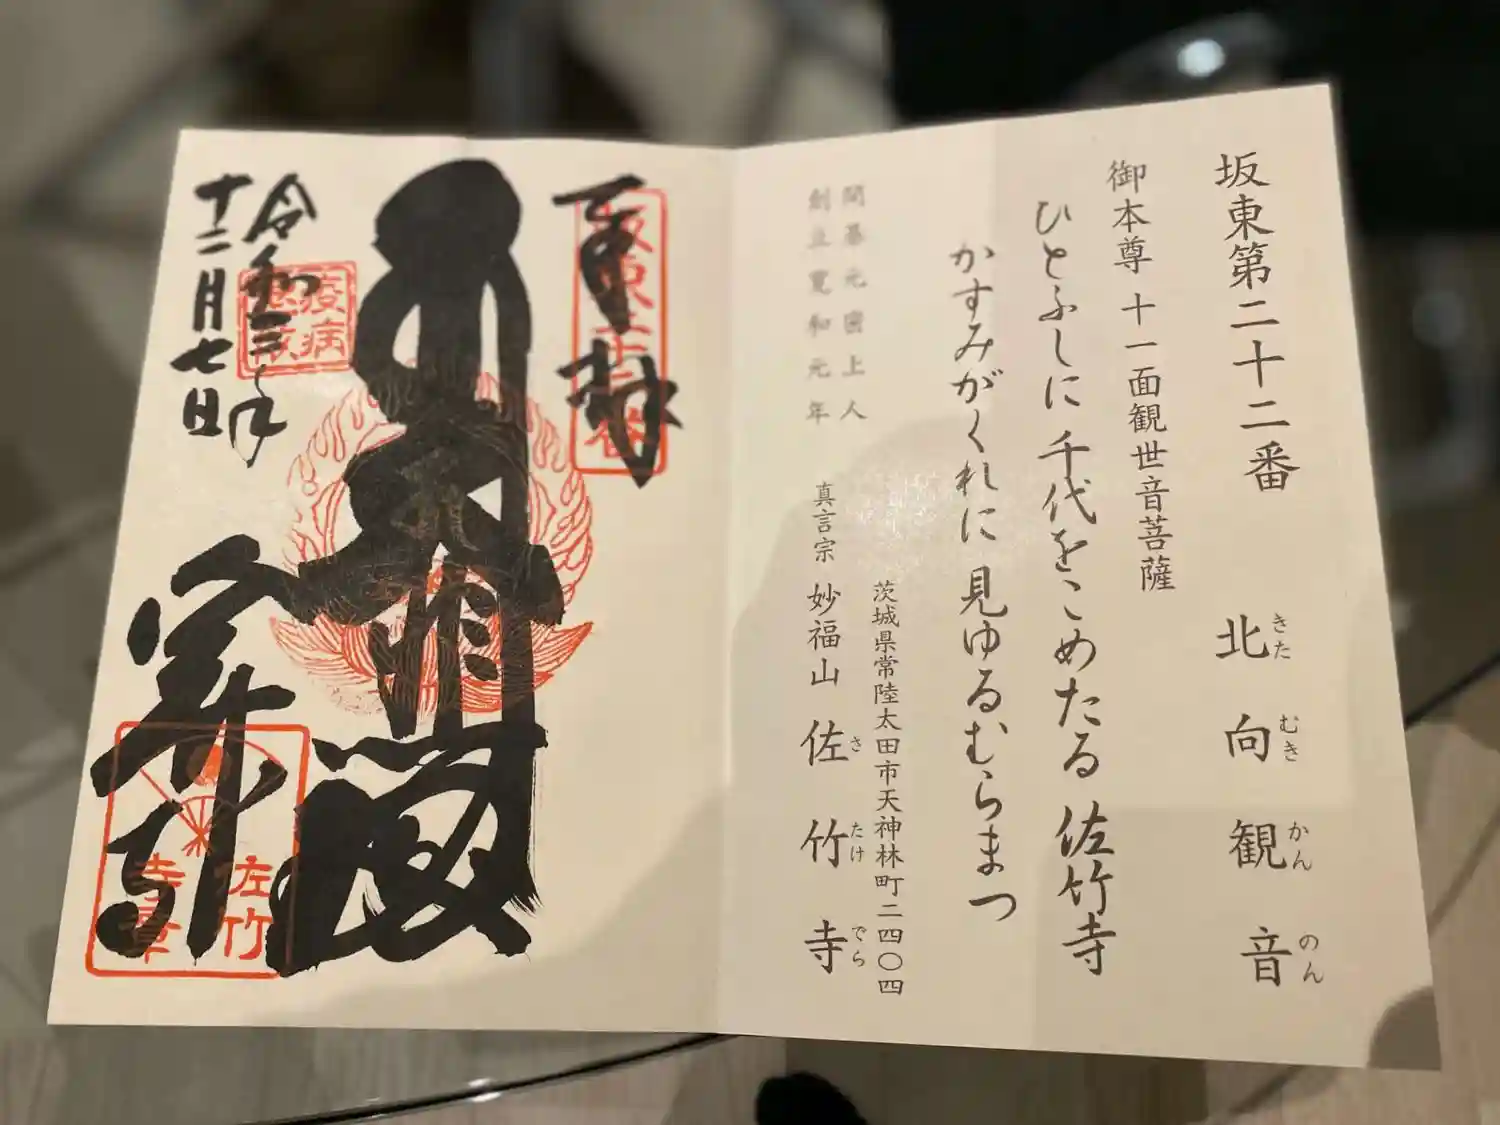 坂東第二十二番 北向観音
きた むき かん のん
御本尊 十一面観世音菩薩
ひとふしに 千代をこめたる 佐竹寺
かすみがくれに 見ゆるむらまつ
開基元密上人
創立寛和元年
茨城県常陸太田市天神林町二四〇四
真言宗 妙福山 佐竹寺
さ たけ でら
奉拝
令和三年
十二月七日
佐竹
寺章